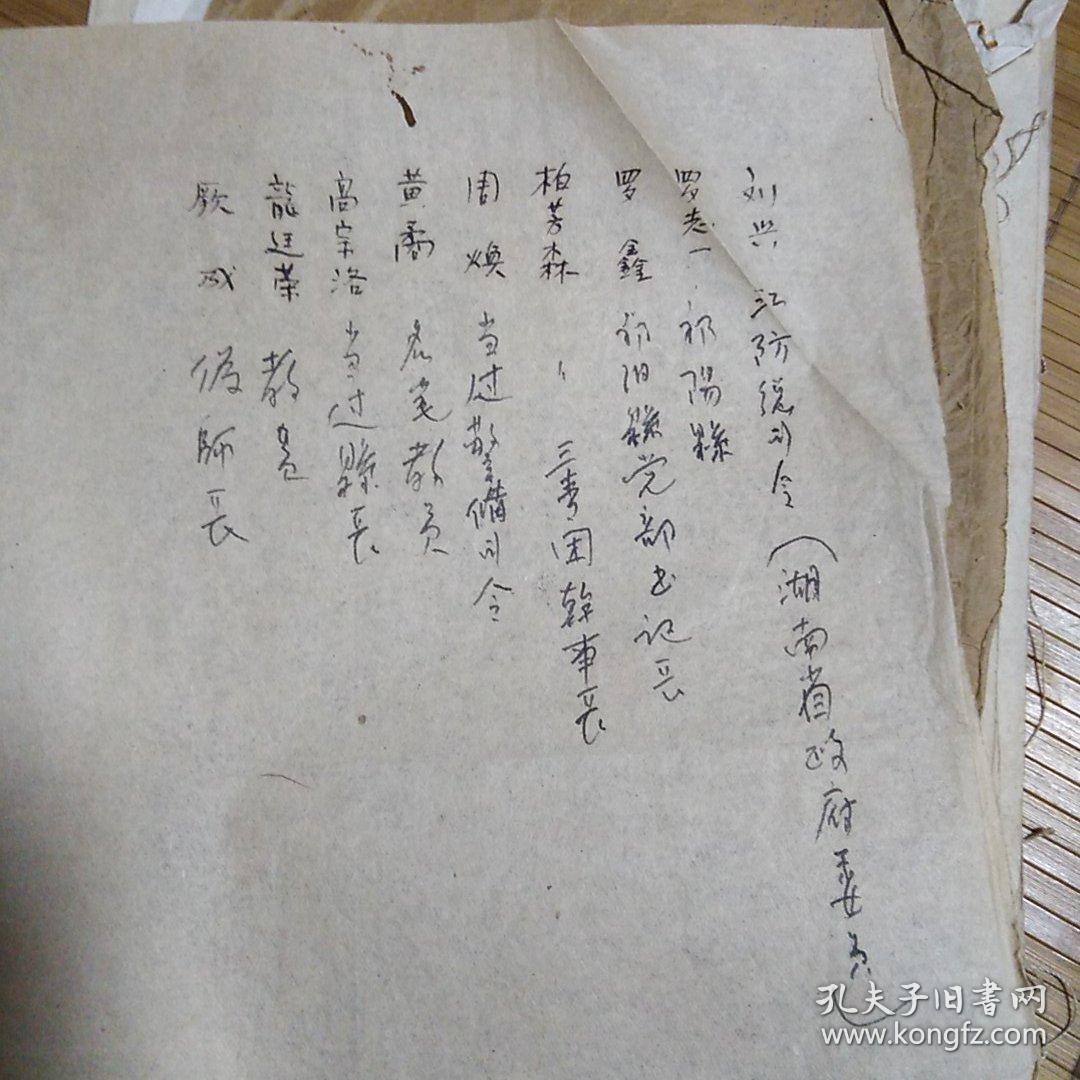 刘兴 江防总司令(湖南省政府委员)
罗志一 祁陽縣
罗鑫 祁阳縣党部书记長
柏芳森 〃 三青团幹事長
周焕 当过警備司令
黄矞 名 教员
高宗洛 当过縣長
龍廷荣 教员
厥成 偽師長
孔夫子旧書网
www.kongfz.com